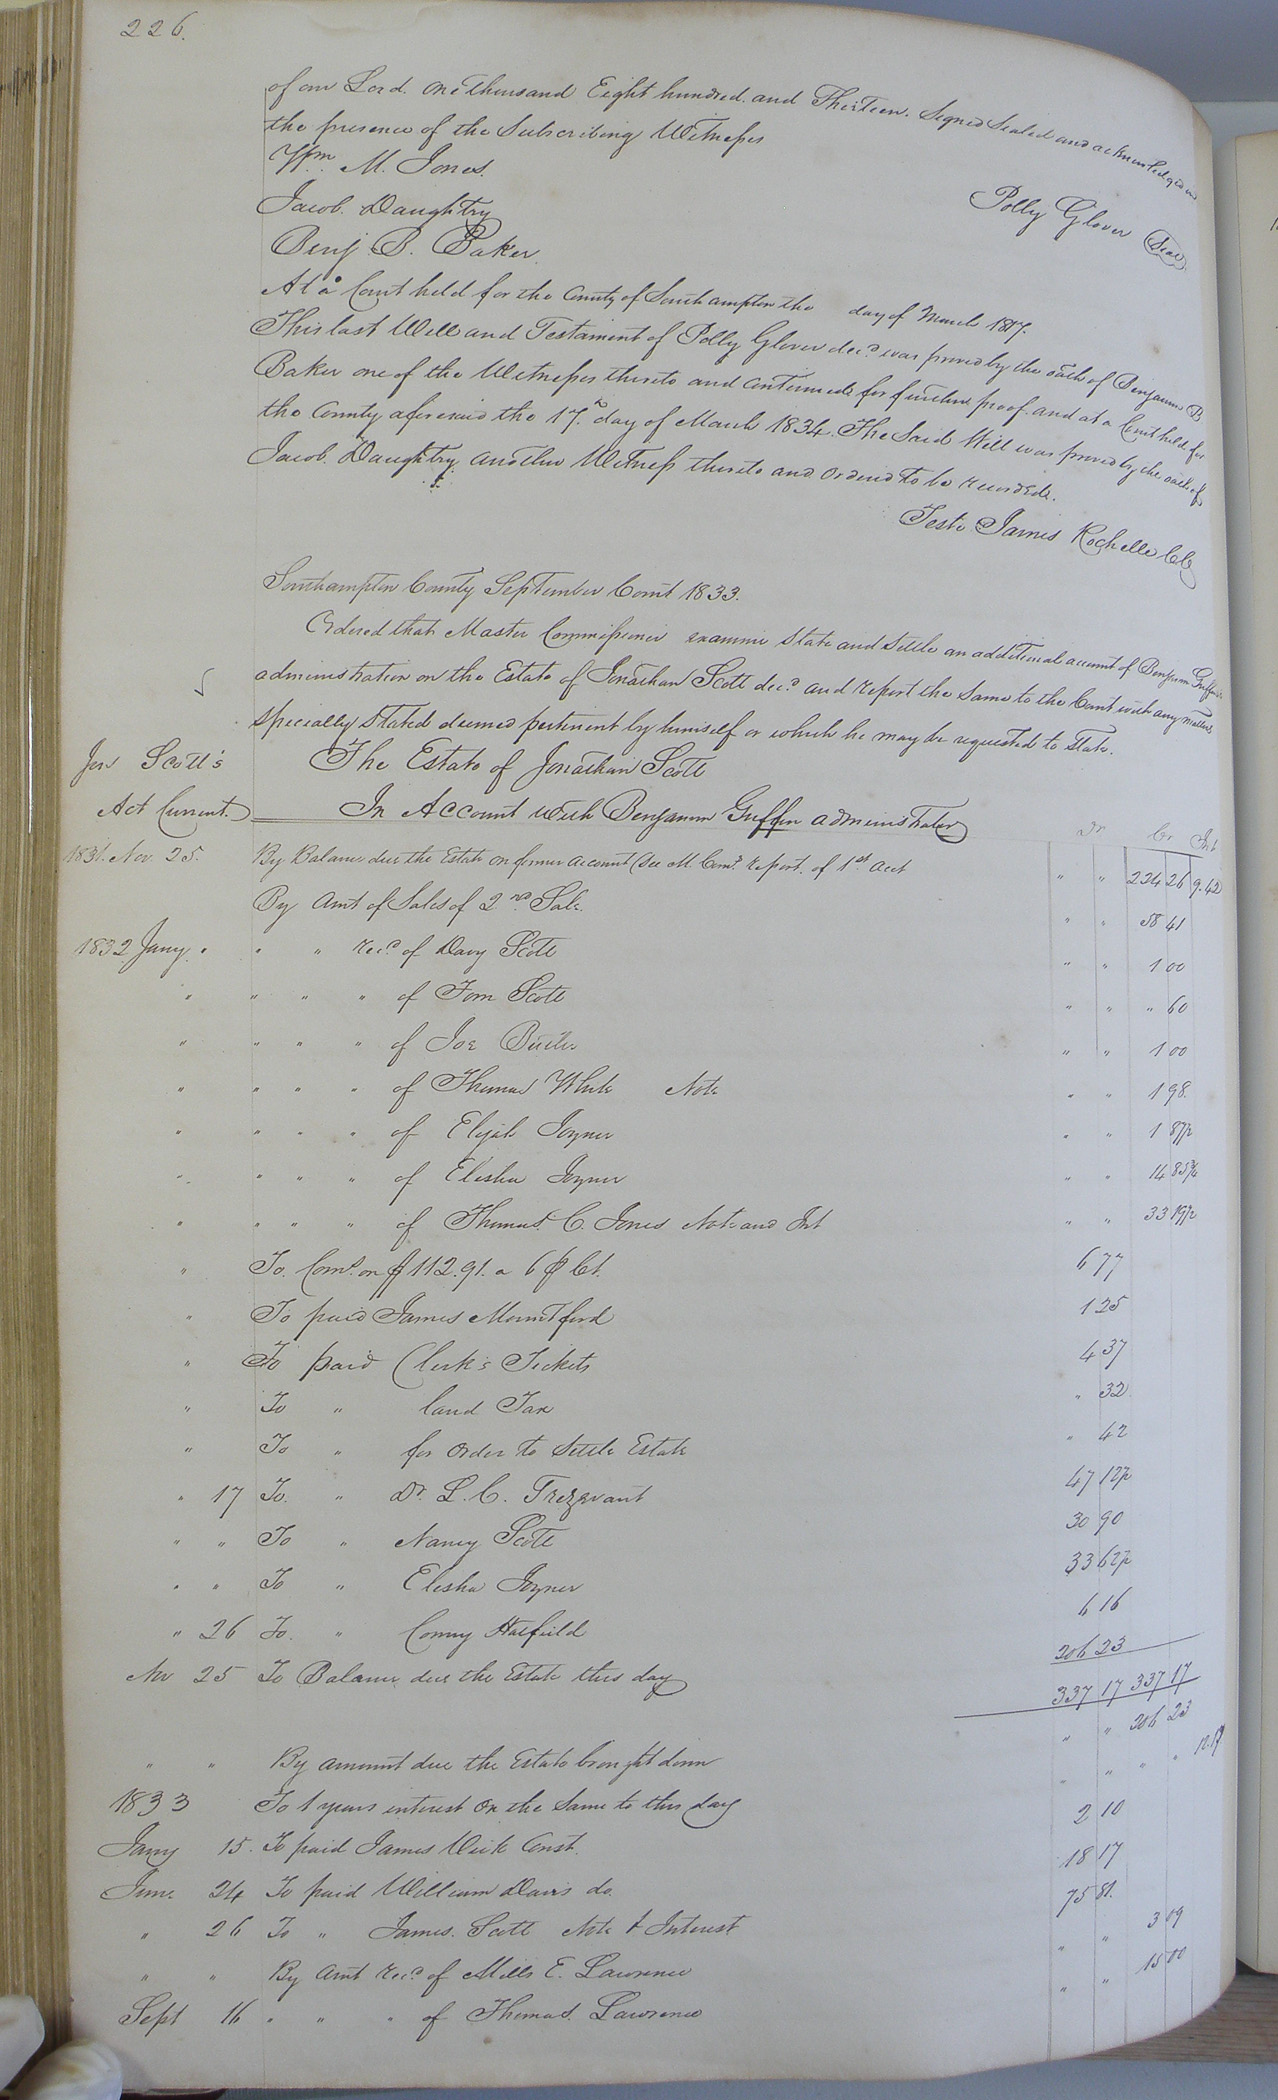 226.
of our Lord. one thousand Eight hundred. and Thirteen. Signed Sealed and acknowledged in
the presence of the Subscribing Witnesses
Wm. M. Jones.
Polly Glover Seal
Jacob. Daughtry
Benj. B. Baker.
At a Court held for the County of Southampton the day of March 1817.
This last Will and Testament of Polly Glover decd. was proved by the oath of Benjamin B
Baker one of the Witnesses thereto and continued for further proof. and at a Court held for
the County aforesaid the 17th day of March 1834. The Said Will was proved by the oath of
Jacob. Daughtry another Witness thereto and ordered to be recorded.
Teste James Rochelle CC
Southampton County September Court 1833.
Ordered that Master Commissioner examine State and Settle an additional account of Benjamin Griffin's
administration on the Estate of Jonathan Scott decd. and report the Same to the Court with any matters
specially Stated deemed pertinent by himself or which he may be requested to State.
Jon Scott's The Estate of Jonathan Scott
Act Current. In Account with Benjamin Griffin administrator Dr Cr Int
1831. Nov. 25. By Balance due the Estate on former account (See M. Comr. report. of 1st acct " " 224 26 9.42
By Amt of Sales of 2nd Sale. " " 58 41
1832 Jany. " " " recd. of Davy Scott " " 1 00
" " " " of Tom Scott " " " 60
" " " " of Joe Butler " " 1 00
" " " " of Thomas White Note " " 1 98.
" " " " of Elijah Joyner " " 1 87½
" " " " of Elisha Joyner " " 14 85¾
" " " " of Thomas. C. Jones Note and Int " " 33 19½
" To. Coms. on $112.91. a 6 p Ct. 6 77
" To paid James Mountford 1 25
" To paid Clerk's Tickets 4 37
" To " land Tax " 32
" To " for order to Settle Estate " 42
" 17 To. " Dr. L. C. Trezevant 47 12½
" " To " Nancy Scott 30 90
" " To " Elisha Joyner 33 62½
" 26 To. " Conny Hatfield 6 16
Nov 25 To Balance due the Estate this day 206 23
337 17 337 17
" " By amount due the Estate brought down " " 206 23
1833 To 1 years interest on the Same to this day " " " "
Jany 15. To paid James Vick Const. 2 10
June. 24 To paid William Davis do. 18 17
" 26 To " James. Scott Note & Interest 75 81.
" " By Amt recd. of Mills E. Lawrence " " 3 09
Sept 16 " " " of Thomas. Lawrence " " 15 00